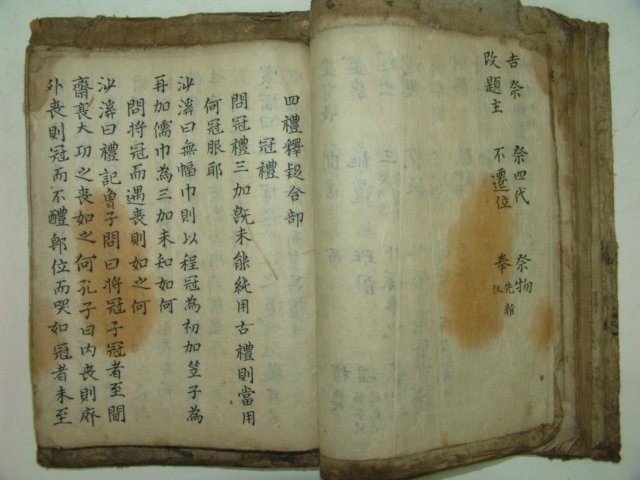 吉祭 祭四代 祭物
改題主 不遷位 奉先雜仪
四禮釋疑合部
冠禮
問冠禮三加旣未能純用古禮則當用
何冠服耶
沙溪曰無幅巾則以程冠為初加笠子為
再加儒巾為三加未知如何
問將冠而遇喪則如之何
沙溪曰禮記曽子問曰將冠子冠者至聞
齋衰大功之喪如之何孔子曰內喪則廢
外喪則冠而不醴即位而哭如冠者未至